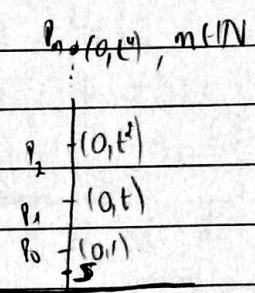 Pn (0,t⁴), n∈ℕ
⋮
P₂ (0,t²)
P₁ (0,t)
P₀ (0,1)